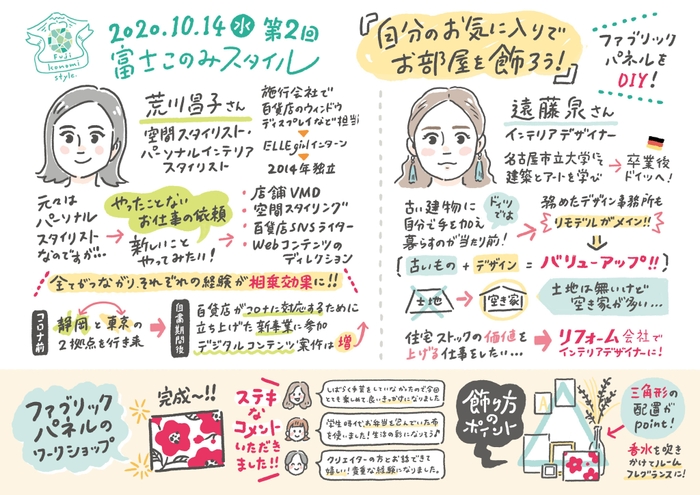 Fuji
konomi
style.
2020.10.14 水 第2回
富士このみスタイル
『自分のお気に入りで
お部屋を飾ろう!』
ファブリック
パネルを
DIY!
荒川昌子さん
空間スタイリスト・
パーソナルインテリア
スタイリスト
施行会社で
百貨店のウィンドウ
ディスプレイなど担当
ELLE girlインターン
2014年独立
元々は
パーソナル
スタイリスト
なのですが…
やったことない
お仕事の依頼
新しいこと
やってみたい!
・店舗VMD
・空間スタイリング
・百貨店SNSライター
・Webコンテンツの
ディレクション
全てがつながり、それぞれの経験が相乗効果に!!
コロナ前
静岡と東京の
2拠点を行き来
自粛期間後
百貨店がコロナに対応するために
立ち上げた新事業に参加
デジタルコンテンツ案件は増
遠藤泉さん
インテリアデザイナー
名古屋市立大学にて
建築とアートを学び
卒業後
ドイツへ!
古い建物に
自分で手を加え
暮らすのが当たり前!
ドイツ
では
務めたデザイン事務所も
リモデルがメイン!!
古いもの + デザイン = バリューアップ!!
土地
空き家
土地は無いけど
空き家が多い…
住宅ストックの価値を
上げる仕事をしたい…
リフォーム会社で
インテリアデザイナーに!
ファブリック
パネルの
ワークショップ
完成〜!!
ステキ
な
コメント
いただき
ました!!
しばらく手芸をしていなかたので今回
とても楽しめて良いきっかけになりました
学生時代お弁当を包んでいた布
を使いました!生活の彩になりそう♪
クリエイターの方とお話できて
嬉しい!貴重な経験になりました。
飾り方
の
ポイント
三角形の
配置が
point!
香水を吹き
かけてルーム
フレグランスに!